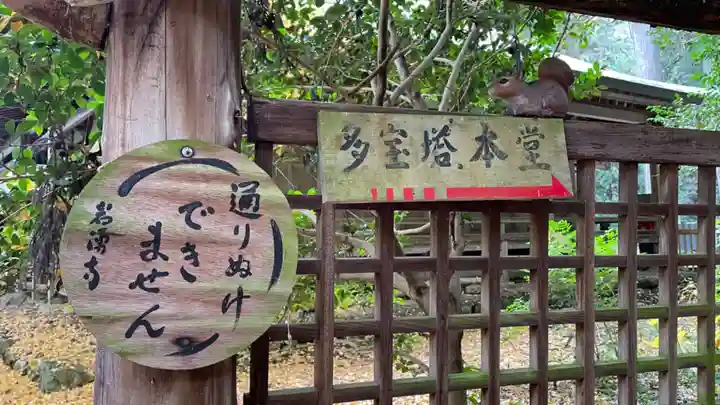 通りぬけ
できません
岩湧寺
多宝塔本堂